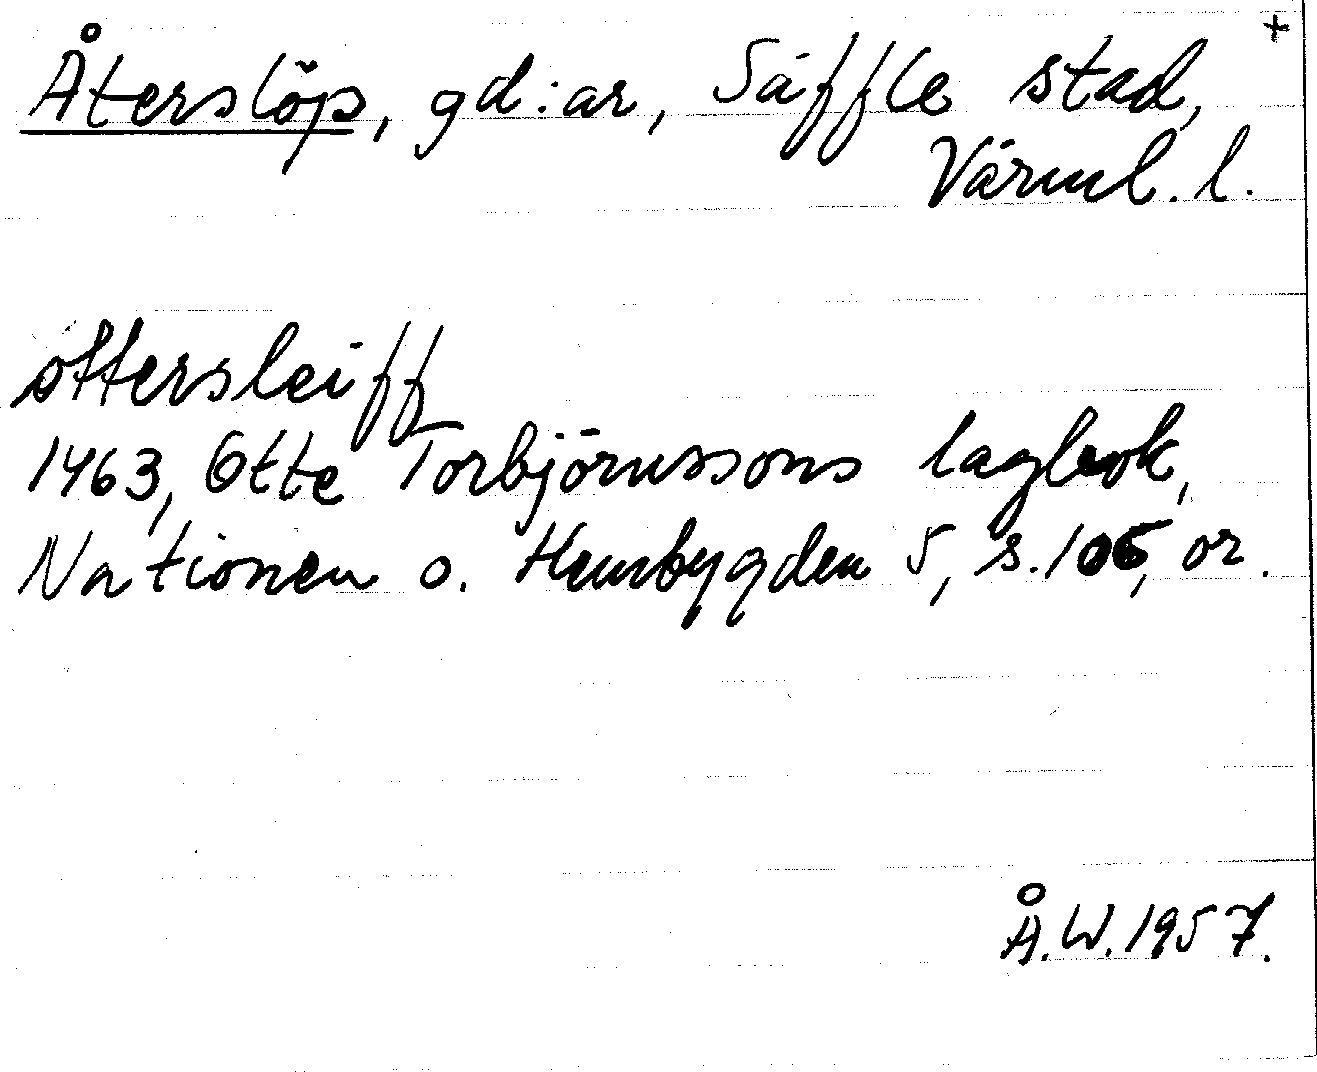 +
Återslöp, gd:ar, Säffle stad,
Värml. l.
ottersleiff
1463, Otte Torbjörnssons lagbok,
Nationen o. Hembygden 5, s. 105, or.
Å.W. 1957.